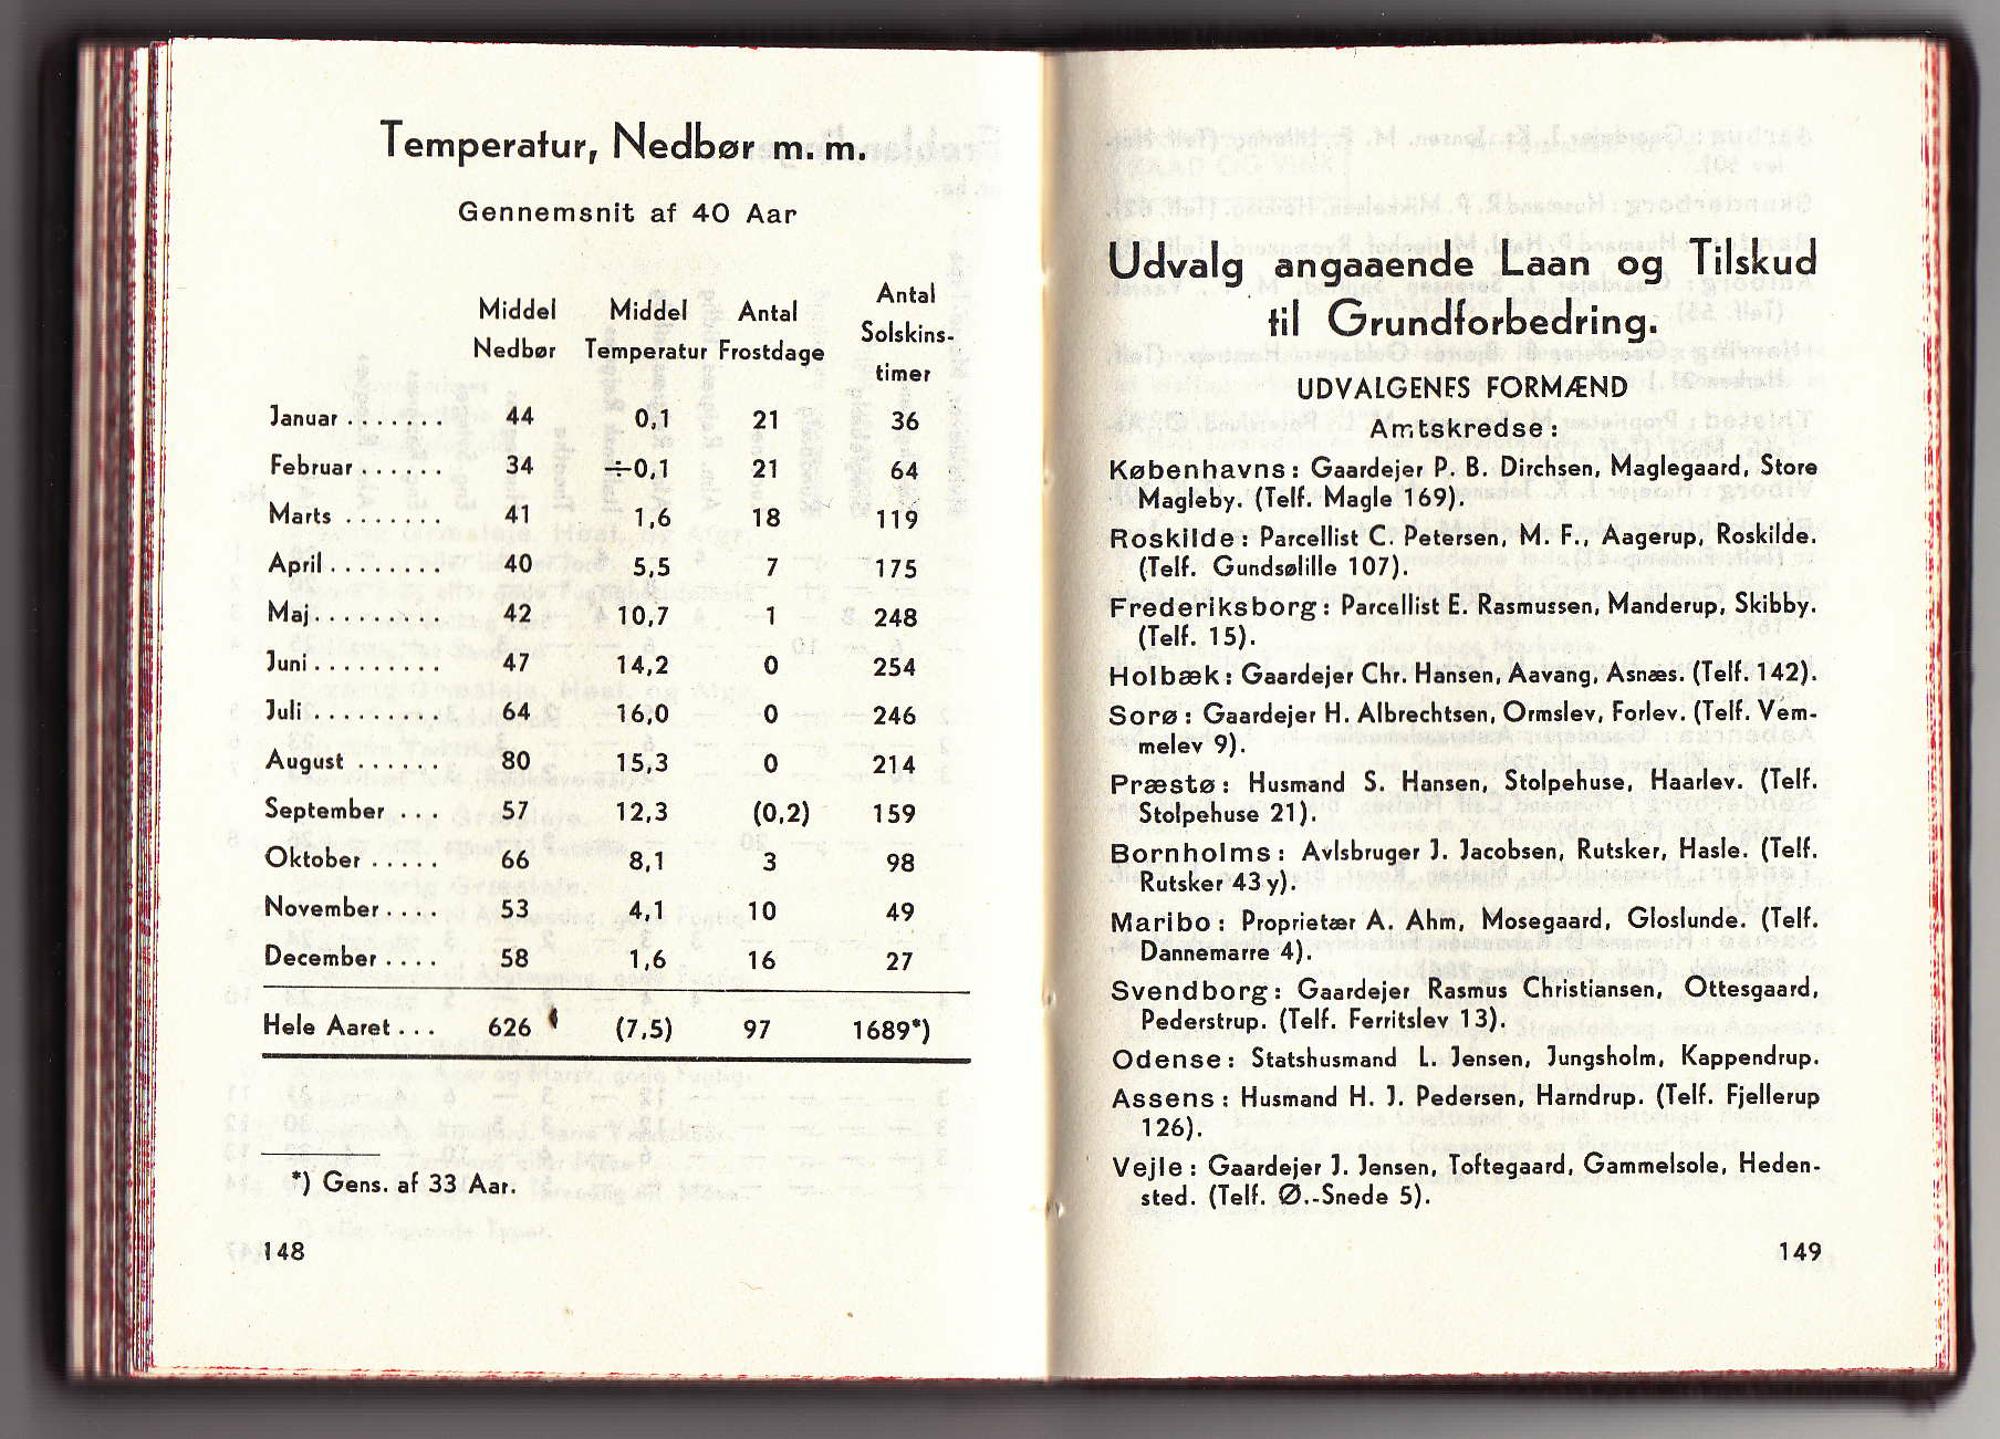 Temperatur, Nedbør m. m.
Gennemsnit af 40 Aar
Middel Nedbør Middel Temperatur Antal Frostdage Antal Solskins-timer
Januar . . . . . . . 44 0,1 21 36
Februar . . . . . . 34 ÷0,1 21 64
Marts . . . . . . . 41 1,6 18 119
April . . . . . . . . 40 5,5 7 175
Maj . . . . . . . . . 42 10,7 1 248
Juni . . . . . . . . . 47 14,2 0 254
Juli . . . . . . . . . 64 16,0 0 246
August . . . . . . 80 15,3 0 214
September . . . 57 12,3 (0,2) 159
Oktober . . . . . 66 8,1 3 98
November . . . . 53 4,1 10 49
December . . . . 58 1,6 16 27
Hele Aaret . . . 626 (7,5) 97 1689*)
*) Gens. af 33 Aar.
148
Udvalg angaaende Laan og Tilskud
til Grundforbedring.
UDVALGENES FORMÆND
Amtskredse:
Københavns: Gaardejer P. B. Dirchsen, Maglegaard, Store
Magleby. (Telf. Magle 169).
Roskilde: Parcellist C. Petersen, M. F., Aagerup, Roskilde.
(Telf. Gundsølille 107).
Frederiksborg: Parcellist E. Rasmussen, Manderup, Skibby.
(Telf. 15).
Holbæk: Gaardejer Chr. Hansen, Aavang, Asnæs. (Telf. 142).
Sorø: Gaardejer H. Albrechtsen, Ormslev, Forlev. (Telf. Vem-
melev 9).
Præstø: Husmand S. Hansen, Stolpehuse, Haarlev. (Telf.
Stolpehuse 21).
Bornholms: Avlsbruger J. Jacobsen, Rutsker, Hasle. (Telf.
Rutsker 43 y).
Maribo: Proprietær A. Ahm, Mosegaard, Gloslunde. (Telf.
Dannemarre 4).
Svendborg: Gaardejer Rasmus Christiansen, Ottesgaard,
Pederstrup. (Telf. Ferritslev 13).
Odense: Statshusmand L. Jensen, Jungsholm, Kappendrup.
Assens: Husmand H. J. Pedersen, Harndrup. (Telf. Fjellerup
126).
Vejle: Gaardejer J. Jensen, Toftegaard, Gammelsole, Heden-
sted. (Telf. Ø.-Snede 5).
149